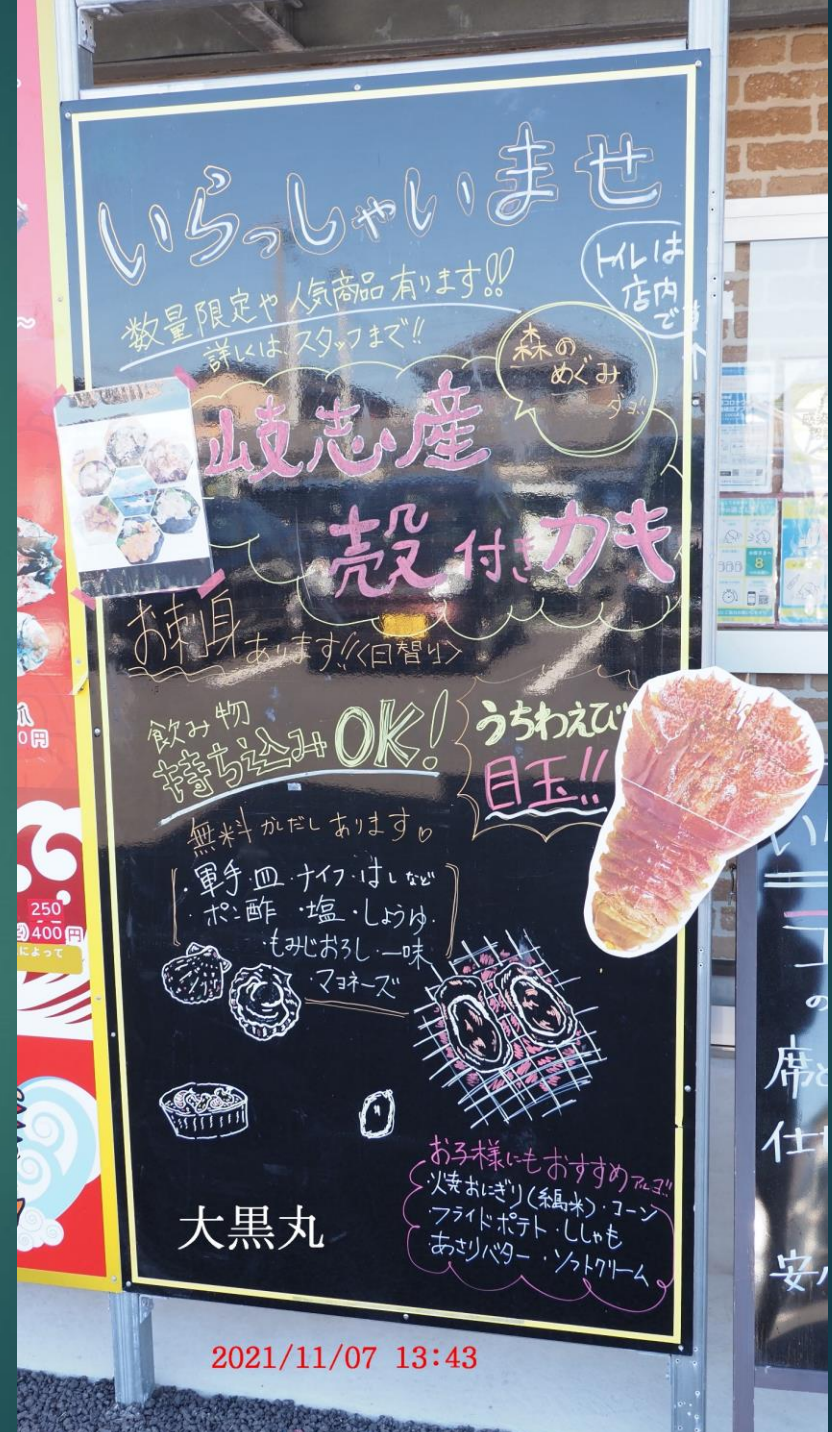 いらっしゃいませ
トイレは
店内で
数量限定や人気商品有ります!!
詳しくはスタッフまで!!
森の
めぐみ
ダヨ!!
岐志産
殻付きカキ
お刺身あります!!<日替り>
飲み物
持ち込みOK!
うちわえび
目玉!!
無料かしだしあります
・軍手・皿・ナイフ・はしなど
・ポン酢・塩・しょうゆ
・もみじおろし・一味
・マヨネーズ
お子様にもおすすめアルヨ!!
・焼おにぎり(糸島米)・コーン
・フライドポテト・ししゃも
あさりバター・ソフトクリーム
大黒丸
2021/11/07 13:43
爪
0円
250
400円
によって
8
い
の
席
仕
安